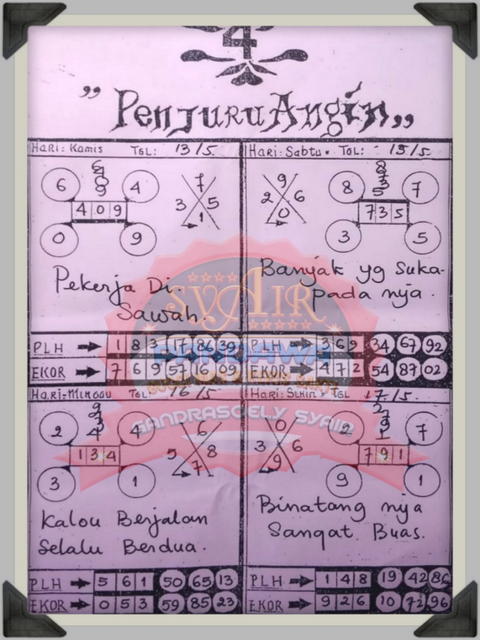 4
"PENJURU ANGIN"
HARI: Kamis TGL: 13/5
6 4
4 0 9
0 9
7
3 5
1
Pekerja Di.
Sawah.
PLH 1 8 3 17 86 39
EKOR 7 6 9 57 16 09
HARI: Sabtu. TGL: 15/5.
9
2 6
0
8 7
7 3 5
3 5
Banyak yg suka
pada nya.
PLH 3 6 2 34 67 92
EKOR 4 7 2 54 87 02
HARI: MINGGU TGL: 16/5
2 4
1 3 4
3 1
6
5 8
7
Kalou Berjalan
Selalu Berdua.
PLH 5 6 1 50 65 13
EKOR 0 5 3 59 85 23
HARI: SENIN TGL 17/5
0
3 6
9
2 7
7 9 1
9 1
Binatang nya
Sangat Buas.
PLH 1 4 8 19 42 86
EKOR 9 2 6 10 72 96
SYAIR
SANDRASGELY SYAIR